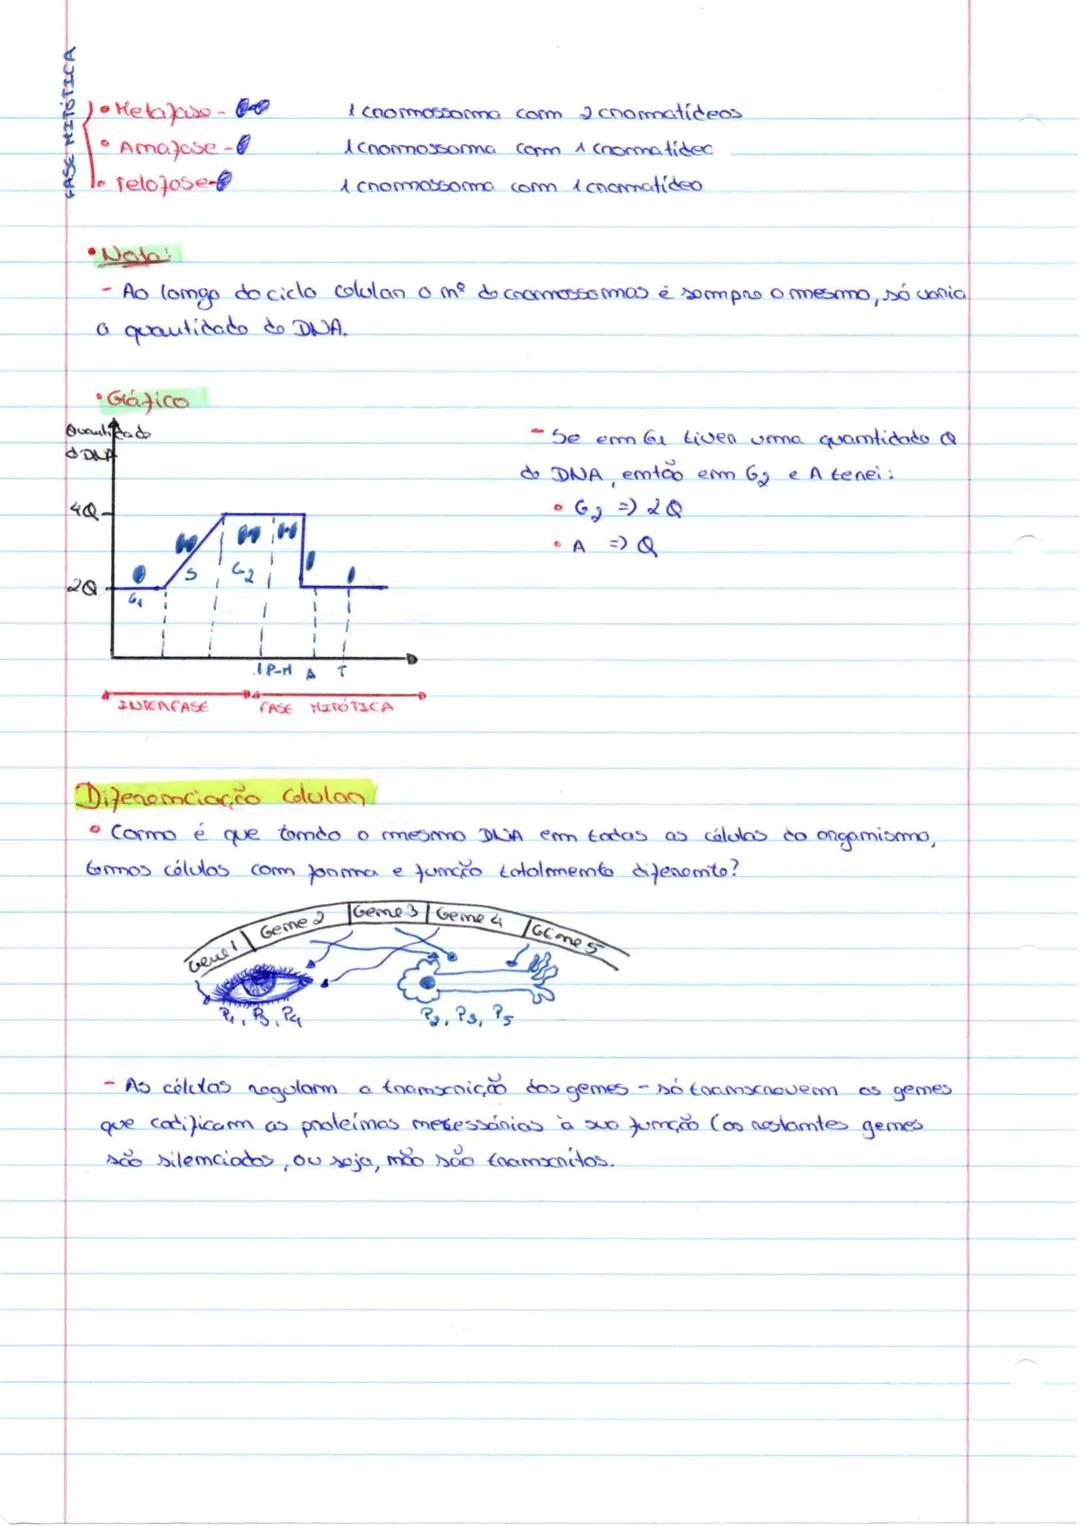 FASE MITÓTICA
• Metafase - 1 cromossoma com 2 cromatídeos
• Anafase - 1 cromossoma com 1 cromatídeo
• Telofose - 1 cromossoma com 1 cromatídeo
• Nota:
- Ao longo do ciclo celular o nº de cromossomas é sempre o mesmo, só varia
a quantidade de DNA.
• Gráfico
Quantidade
d DNA
4Q
2Q
G1
S
G2
P-M A T
INTERFASE
FASE MITÓTICA
- Se em G1 tiver uma quantidade Q
de DNA, então em G2 e A terei:
• G2 => 2Q
• A => Q
Diferenciação Celular
• Como é que tendo o mesmo DNA em todas as células do organismo,
temos células com forma e função totalmente diferente?
Gene 1 Gene 2 Gene 3 Gene 4 Gene 5
P1, P3, P4
P2, P3, P5
- As células regulam a transcrição dos genes - só transcrevem os genes
que codificam as proteínas necessárias à sua função (os restantes genes
são silenciados, ou seja, não são transcritos.